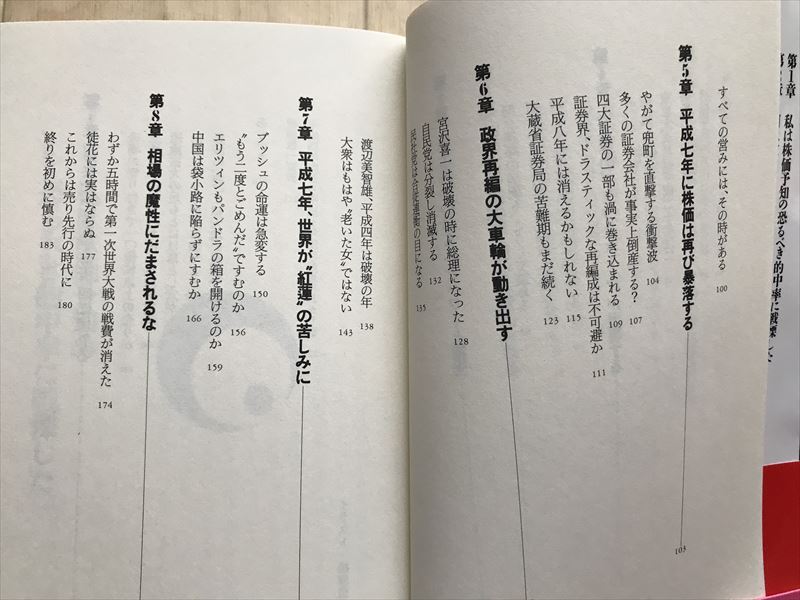 すべての営みには、その時がある 100
第5章 平成七年に株価は再び暴落する 103
やがて兜町を直撃する衝撃波 104
多くの証券会社が事実上倒産する? 107
四大証券の一部も渦に巻き込まれる 109
証券界、ドラスティックな再編成は不可避か 111
平成八年には消えるかもしれない 115
大蔵省証券局の苦難期もまだ続く 123
第6章 政界再編の大車輪が動き出す
宮沢喜一は破壊の時に総理になった 128
自民党は分裂し消滅する 132
135
渡辺美智雄、平成四年は破壊の年 138
大衆はもはや“老いた女”ではない 143
第7章 平成七年、世界が“紅蓮”の苦しみに
ブッシュの命運は急変する 150
“もう二度とごめんだ”ですむのか 156
エリツィンもパンドラの箱を開けるのか 159
中国は袋小路に陥らずにすむか 166
第8章 相場の魔性にだまされるな
わずか五時間で第一次世界大戦の戦費が消えた 174
徒花には実はならぬ 177
これからは売り先行の時代に 180
終りを初めに慎む 183
第1章 私は株価予知の恐るべき的中率に戦慄